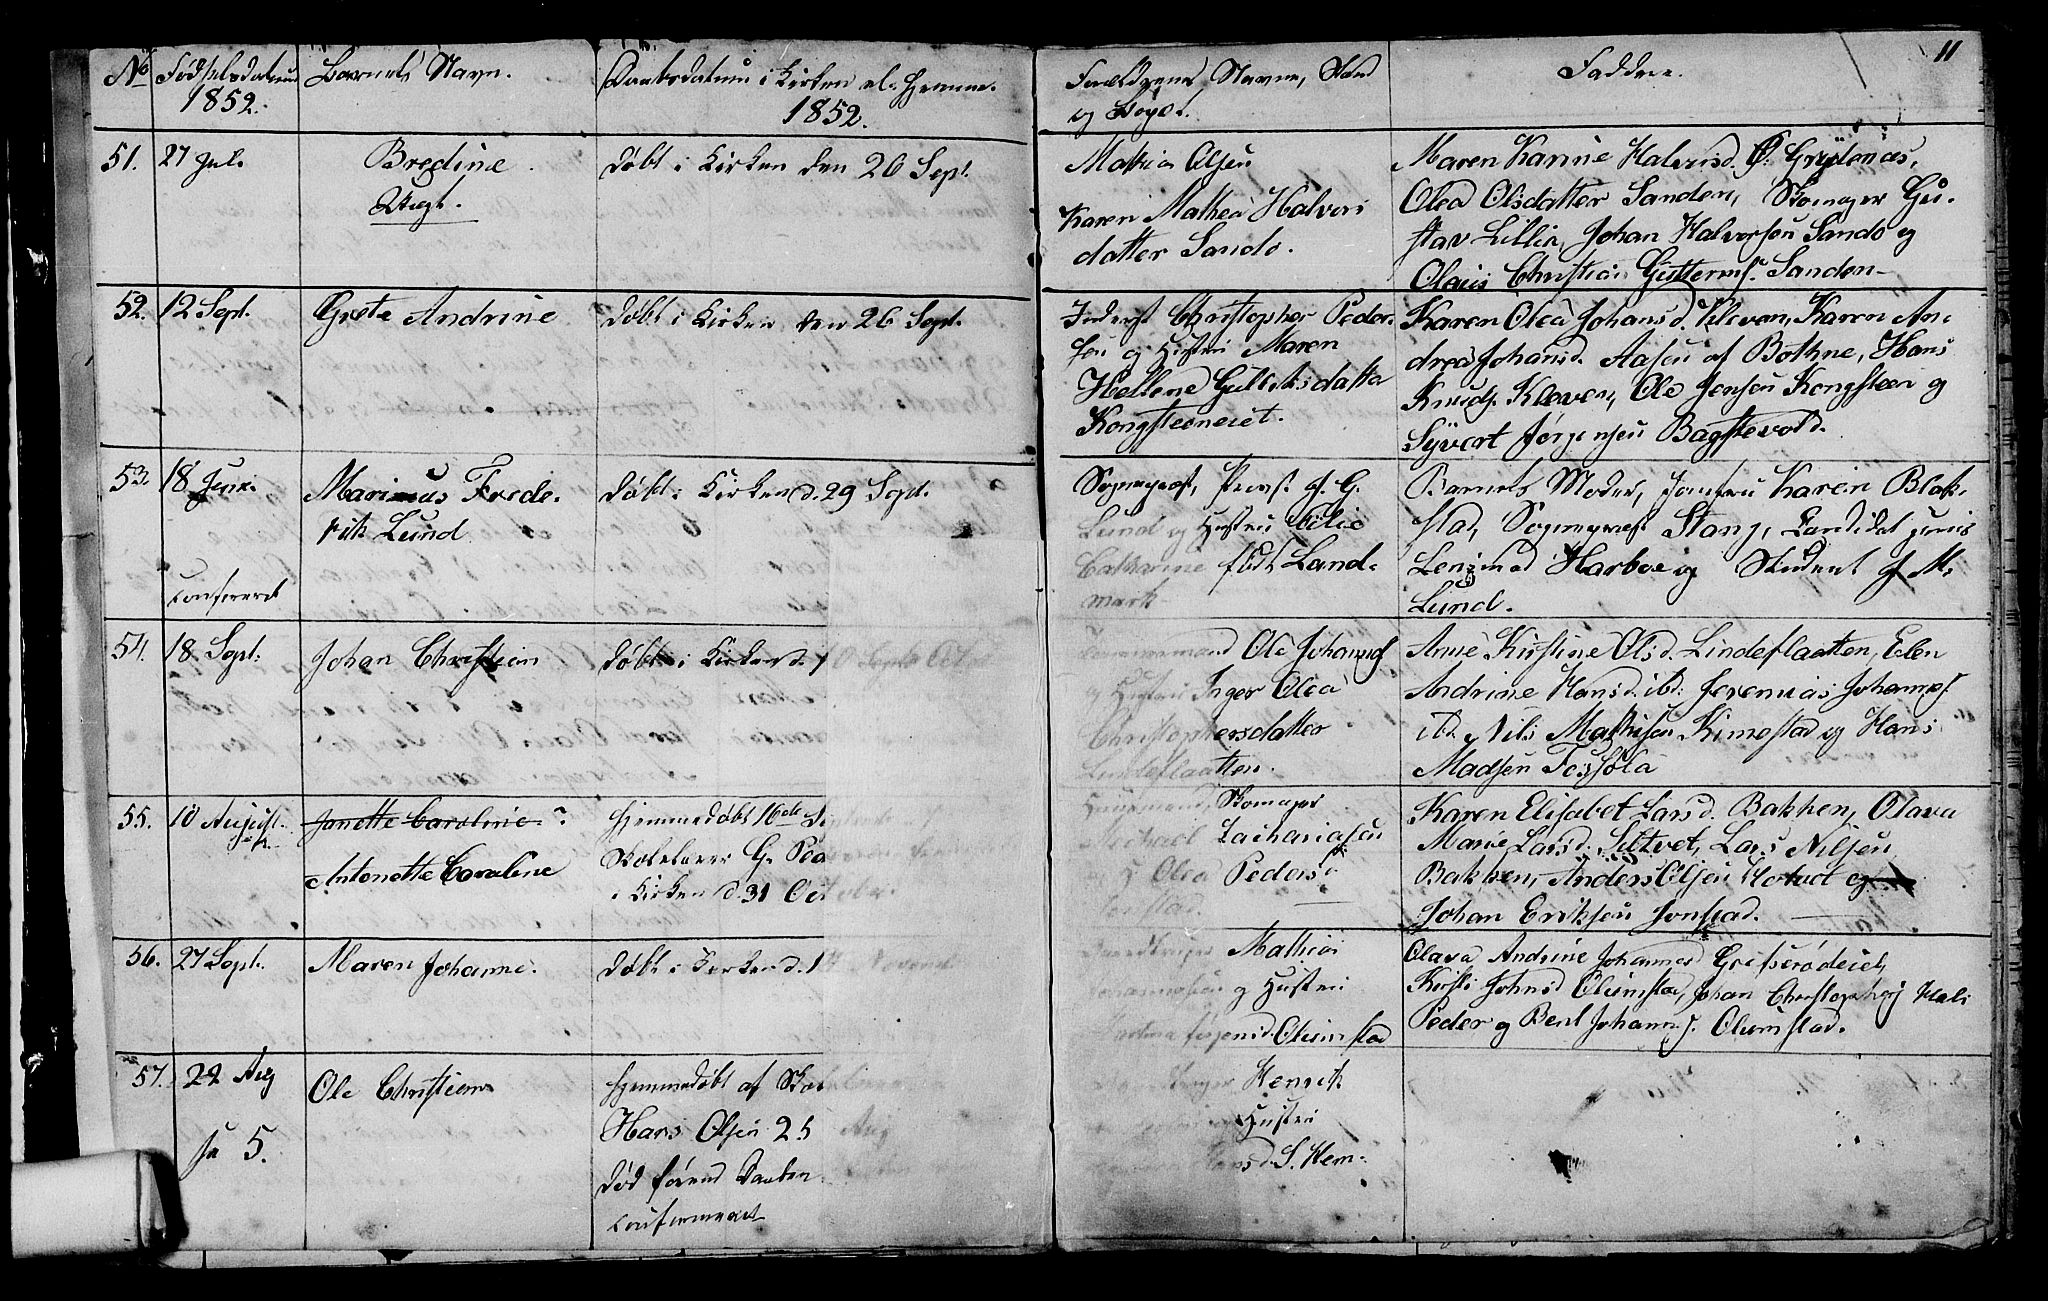 11
No Fødselsdatum 1852. Barnets Navn. Daabsdatum i Kirken el. Hjemme. 1852.
Forældrenes Navne, Stand og Bopæl. Faddere.
51. 27 Jul. Bredine. Uægt. Døbt i Kirken den 26 Sept.
Mathias Olsen
Karen Mathea Halvors
datter Sandø.
Maren Karine Halvorsd. Ø. Grytenæs,
Olea Olsdatter Sanden, Skomager Gu-
stav Lillie, Johan Halvorsen Sandø og
Olaus Christian Guttormss. Sanden
52. 12 Sept. Grete Andrine Døbt i Kirken den 26 Sept.
Inderst Christopher Peder-
sen og Hustru Maren
Hellene Gulliksdatter
Kongsteneiet.
Karen Olea Johansd. Kleven, Karen An-
drea Johansd. Aasen af Bothne, Hans
Knuds. Kleven, Ole Jensen Kongsteen og
Syvert Jørgensen Bagstevold.
53. 18 Juni. Marinus Frede-
rik Lund
Confereret
Døbt i Kirken d. 29 Sept.
Sognepræst, G.
Lund og Hustru
Catharine født Land-
mark
Barnets Moder, Jomfru Karen Blak-
stad, Sognepræst Stang, Candidat juris
Harboe og Student M.
Lund.
54. 18 Sept. Johan Christian Døbt i Kirken d. 1
Ole Johanns
og Hustru Inger Olea
Christophersdatter
Lindeflaatten.
Anne Kirstine Olsd. Lindeflaatten, Elen
Andrine Hansd. ibd. Jeremias Johanns.
ibd. Nils Mathisen Kimestad og Hans
Madsen Fossøla
55. 10 August. Janette Caroline ?
Antonette Caroline
Hjemmedøbt 16de S
Skolelærer G. Ped
i Kirken d. 31 Oct
Skomager
Michael Zachariasen
og Olea Peders
Karen Elisabet Larsd. Bakken, Olava
Marie Larsd. Siltvet, Lars Nilsen
Bakken, Anders Olsen og
Johan Eriksen Jonstad.
56. 27 Sept. Maren Johanne. Døbt i Kirken d. 1 November
Mathias
og Hustru
Olumstad
Olava Andrine Johannesd Grefserødeiet,
Kirsti Johnsd Olumstad, Johan Christophers
Peder og Bent Johanns. Olumstad.
57. 22 Aug Ole Christian
5.
Hjemmedøbt af Skol
Hans Olsen 25 Aug
Død førend Daaben
confirmeret
Henrik
Hustru
S. Hem-